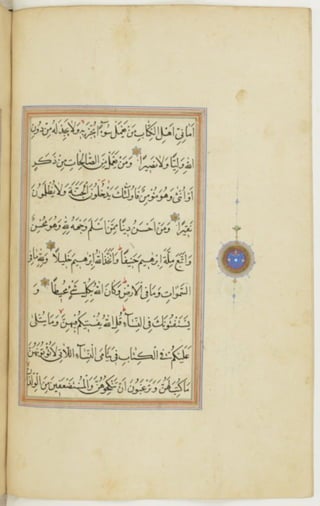 أَمَانِيِّ أَهْلِ الْكِتَابِ مَنْ يَعْمَلْ سُوءًا يُجْزَ بِهِ وَلَا يَجِدْ لَهُ مِنْ دُونِ
اللَّهِ وَلِيًّا وَلَا نَصِيرًا وَمَنْ يَعْمَلْ مِنَ الصَّالِحَاتِ مِنْ ذَكَرٍ
أَوْ أُنْثَى وَهُوَ مُؤْمِنٌ فَأُولَئِكَ يَدْخُلُونَ الْجَنَّةَ وَلَا يُظْلَمُونَ
نَقِيرًا وَمَنْ أَحْسَنُ دِينًا مِمَّنْ أَسْلَمَ وَجْهَهُ لِلَّهِ وَهُوَ مُحْسِنٌ
وَاتَّبَعَ مِلَّةَ إِبْرَاهِيمَ حَنِيفًا وَاتَّخَذَ اللَّهُ إِبْرَاهِيمَ خَلِيلًا وَلِلَّهِ مَا فِي
السَّمَوَاتِ وَمَا فِي الْأَرْضِ وَكَانَ اللَّهُ بِكُلِّ شَيْءٍ مُحِيطًا وَ
يَسْتَفْتُونَكَ فِي النِّسَاءِ قُلِ اللَّهُ يُفْتِيكُمْ فِيهِنَّ وَمَا يُتْلَى
عَلَيْكُمْ فِي الْكِتَابِ فِي يَتَامَى النِّسَاءِ اللَّاتِي لَا تُؤْتُونَهُنَّ
مَا كُتِبَ لَهُنَّ وَتَرْغَبُونَ أَنْ تَنْكِحُوهُنَّ وَالْمُسْتَضْعَفِينَ مِنَ الْوِلْدَانِ